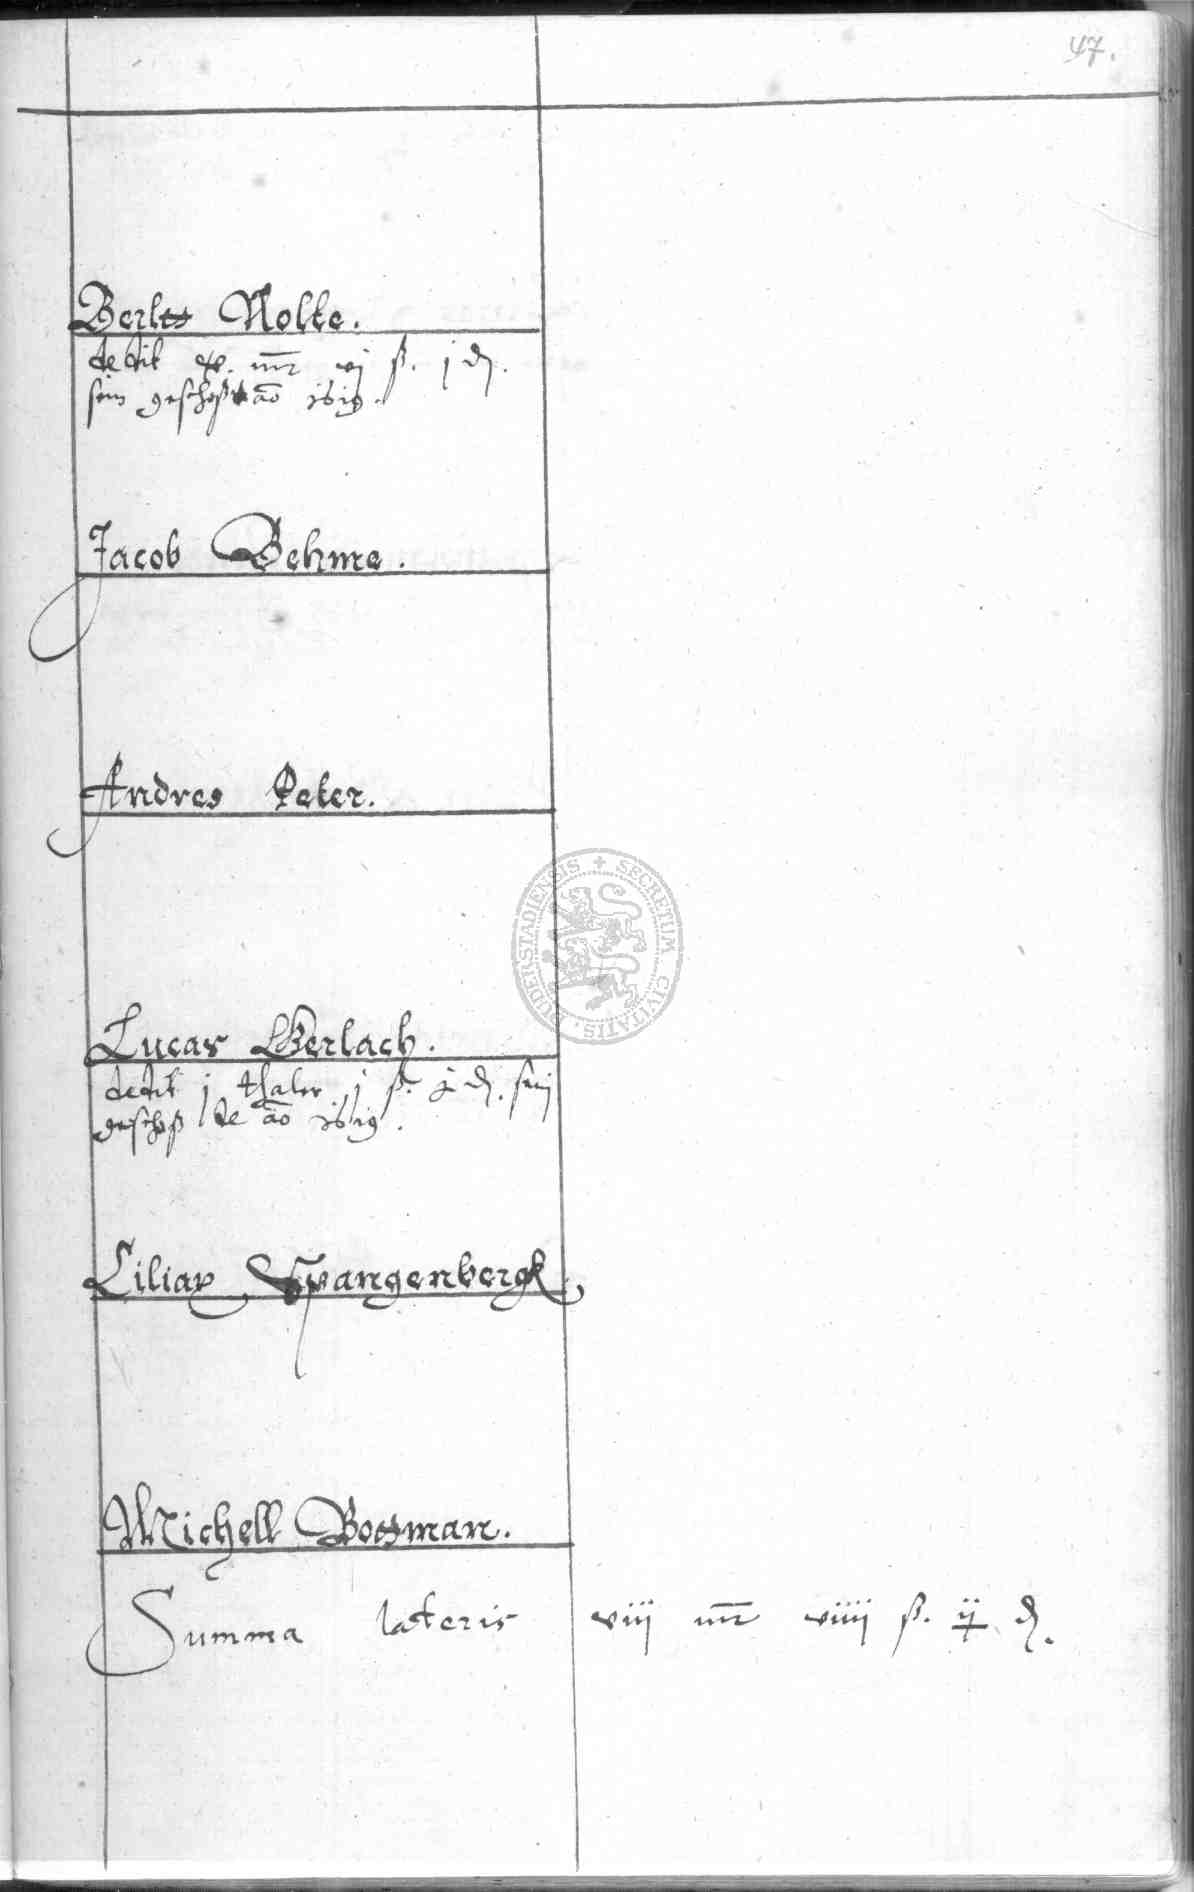 47.
Nolte.
dedit mr vj ß. j d.
sein geschoß ao 1619.
Jacob Behme.
Andres Peter.
SECRETUM CIVITATIS DUDERSTADIENSIS
Lucas Gerlach.
dedit j thaler j ß. d. sein
geschoß de ao 1619.
Ciliax Spangenbergk
Michell Bossman.
Summa lateris viij mr viiij ß. ij d.